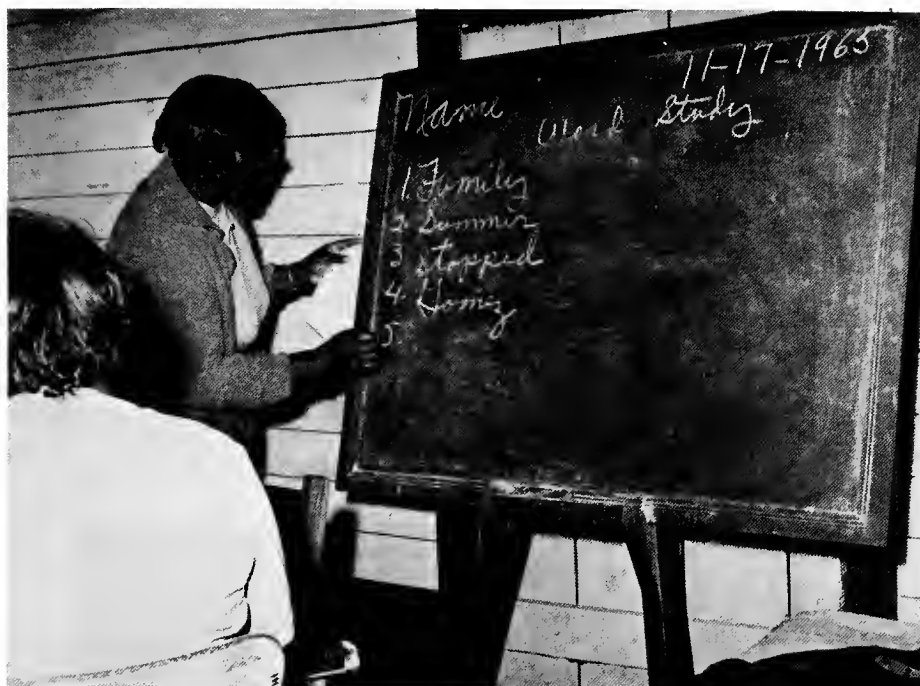 11-17-1965
Name Word Study
1. Family
2. Summer
3 stopped
4. Homey
5